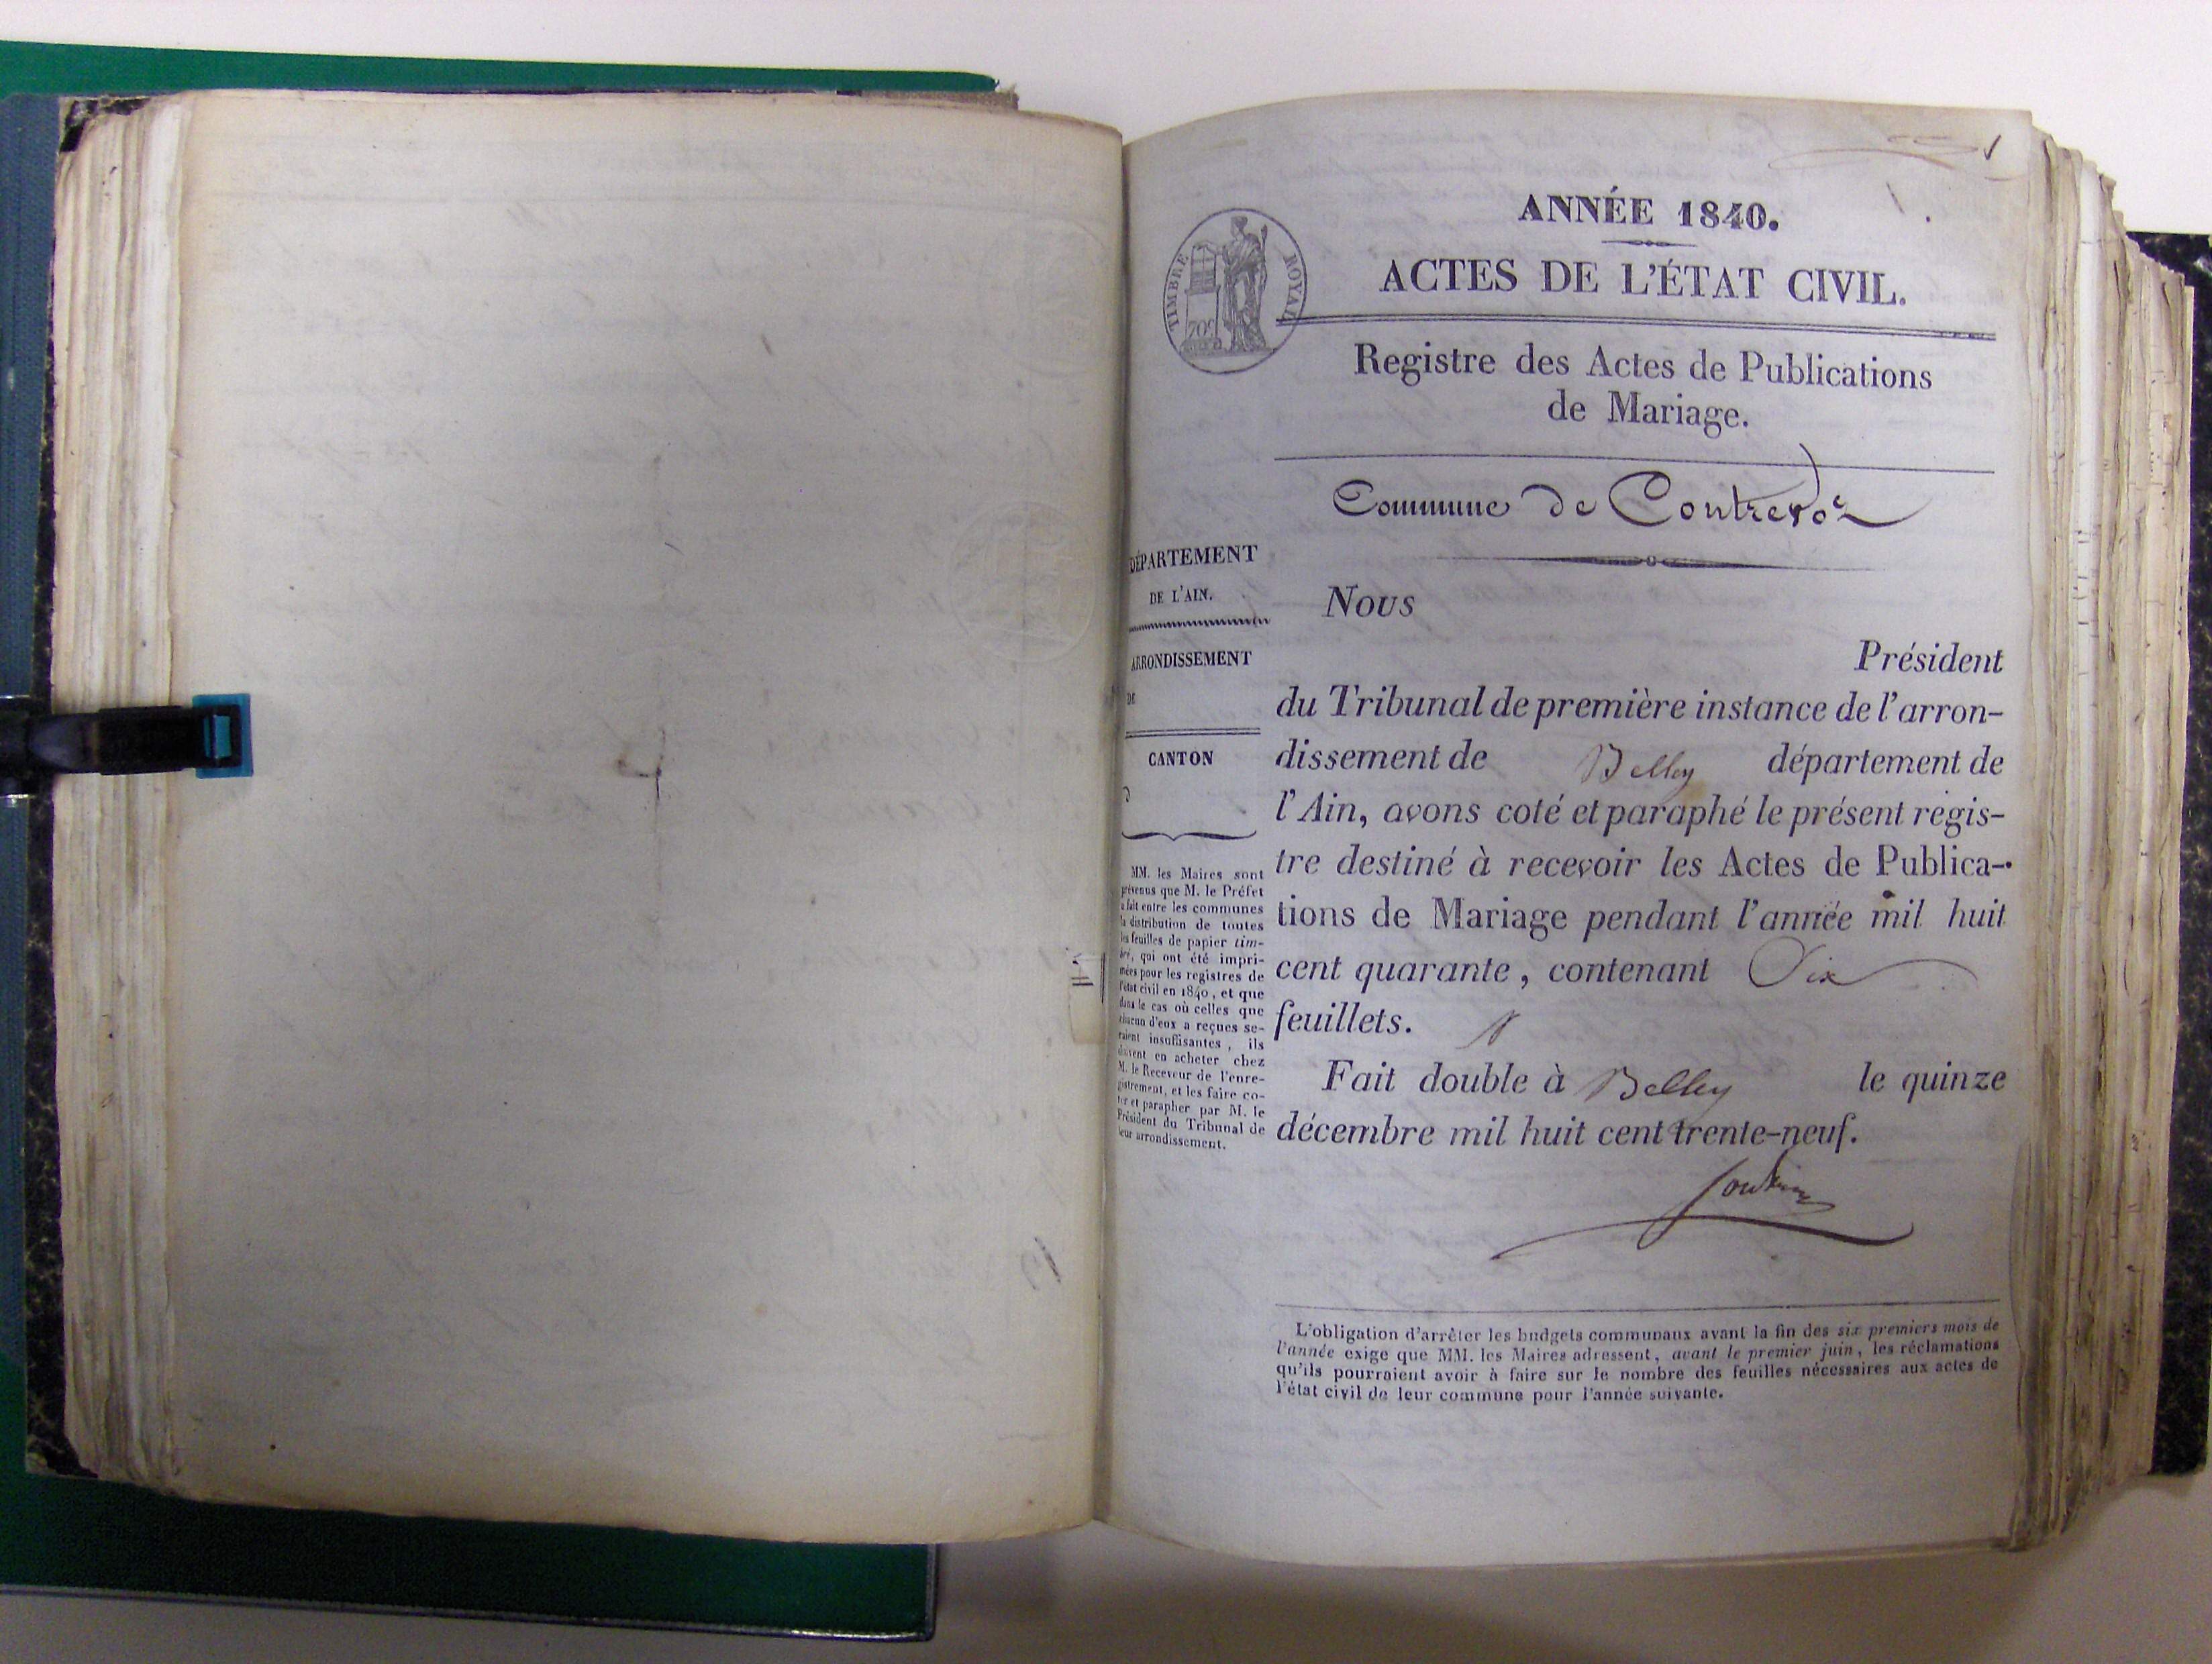 1
ANNÉE 1840.
TIMBRE ROYAL
70c
ACTES DE L'ÉTAT CIVIL.
Registre des Actes de Publications
de Mariage.
Commune de Contrevoz
DÉPARTEMENT
DE L'AIN.
ARRONDISSEMENT
DE
CANTON
MM. les Maires sont
prévenus que M. le Préfet
a fait entre les communes
la distribution de toutes
les feuilles de papier tim-
bré, qui ont été impri-
mées pour les registres de
l'état civil en 1840, et que
dans le cas où celles que
chacun d'eux a reçues se-
raient insuffisantes, ils
doivent en acheter chez
M. le Receveur de l'enre-
gistrement, et les faire co-
ter et parapher par M. le
Président du Tribunal de
leur arrondissement.
Nous
Président
du Tribunal de première instance de l'arron-
dissement de Belley département de
l'Ain, avons coté et paraphé le présent regis-
tre destiné à recevoir les Actes de Publica-
tions de Mariage pendant l'année mil huit
cent quarante, contenant Six
feuillets.
Fait double à Belley le quinze
décembre mil huit cent trente-neuf.
L'obligation d'arrêter les budgets communaux avant la fin des six premiers mois de
l'année exige que MM. les Maires adressent, avant le premier juin, les réclamations
qu'ils pourraient avoir à faire sur le nombre des feuilles nécessaires aux actes de
l'état civil de leur commune pour l'année suivante.